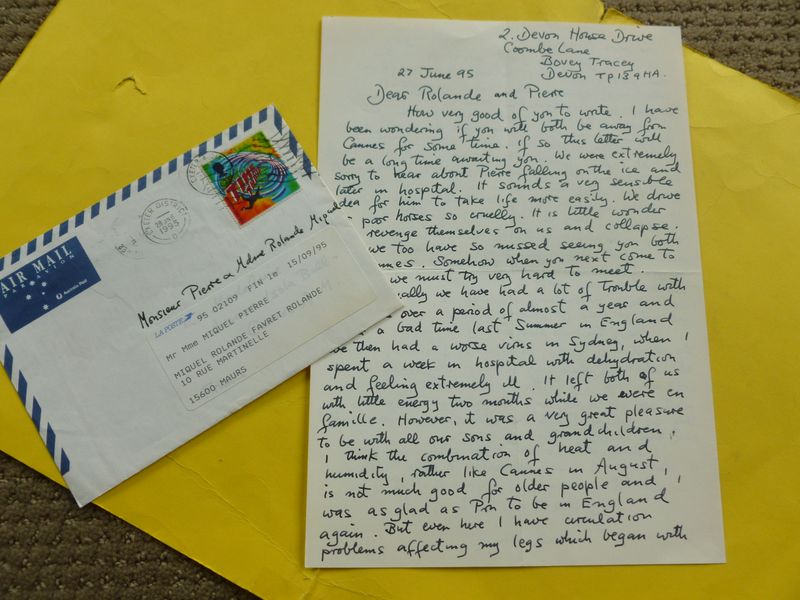 2. Devon House Drive
Coombe Lane
Bovey Tracey
Devon TP13 9HA.
27 June 95
Dear Rolande and Pierre
How very good of you to write. I have
been wondering if you will both be away from
Cannes for some time. If so this letter will
be a long time awaiting you. We were extremely
sorry to hear about Pierre falling on the ice and
later in hospital. It sounds a very sensible
idea for him to take life more easily. We drive
poor horses so cruelly. It is little wonder
revenge themselves on us and collapse.
we too have so missed seeing you both
Somehow when you next come to
we must try very hard to meet.
we have had a lot of trouble with
over a period of almost a year and
a bad time last Summer in England
then had a worse virus in Sydney, when I
spent a week in hospital with dehydration
and feeling extremely ill. It left both of us
with little energy two months while we were en
famille. However, it was a very great pleasure
to be with all our sons and grandchildren.
I think the combination of heat and
humidity, rather like Cannes in August,
is not much good for older people and I
was as glad as Pin to be in England
again. But even here I have circulation
problems affecting my legs which began with
EXETER DISTRICT
1995
AIR MAIL
PAR AVION
Australia Post
Monsieur Pierre et Mdme Rolande Miquel
LA POSTE 95 02109 FIN le 15/09/95
Mr Mme MIQUEL PIERRE
MIQUEL ROLANDE FAVRET ROLANDE
10 RUE MARTINELLE
15600 MAURS